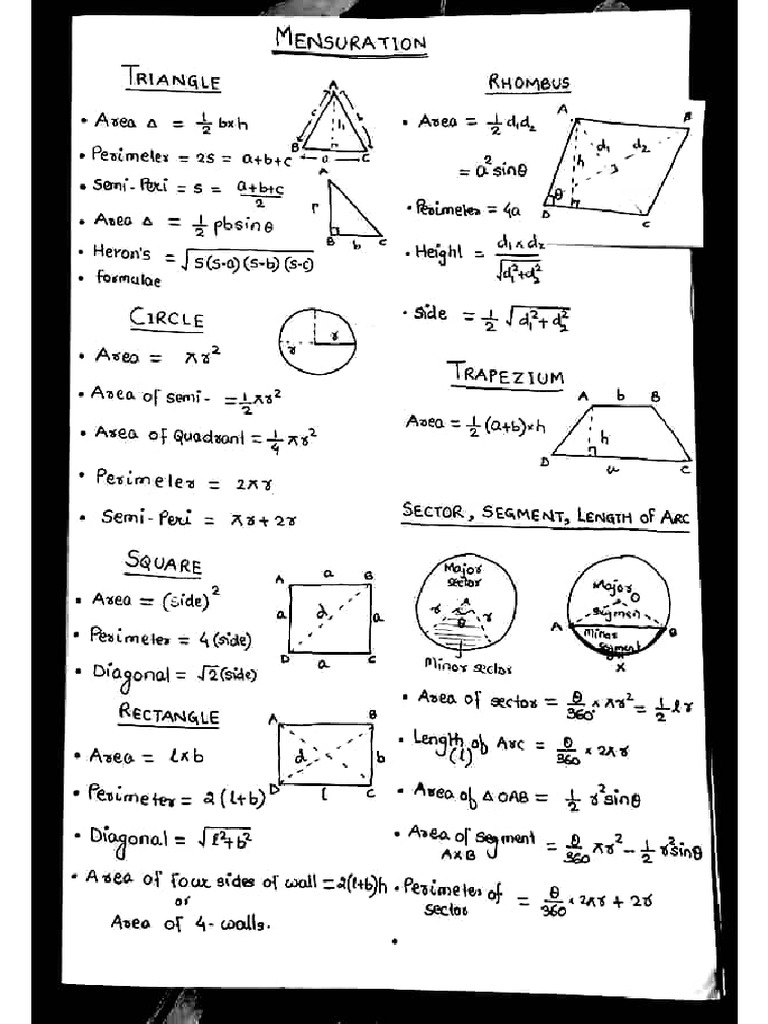 MENSURATION
TRIANGLE
• Area Δ = 1/2 b×h
• Perimeter = 2S = a+b+c
• Semi-Peri = S = (a+b+c)/2
• Area Δ = 1/2 pb sinθ
• Heron's = √S(S-a)(S-b)(S-c)
• formulae
A
c
h
B
a
C
A
P
B
b
C
CIRCLE
• Area = πr²
• Area of semi- = 1/2 πr²
• Area of Quadrant = 1/4 πr²
• Perimeter = 2πr
• Semi-Peri = πr + 2r
r
r
SQUARE
• Area = (side)²
• Perimeter = 4(side)
• Diagonal = √2(side)
A
a
B
a
d
a
D
a
C
RECTANGLE
• Area = l×b
• Perimeter = 2(l+b)
• Diagonal = √l²+b²
• Area of four sides of wall = 2(l+b)h
or
Area of 4-walls.
A
B
d
b
D
l
C
RHOMBUS
• Area = 1/2 d₁d₂
= a² sinθ
• Perimeter = 4a
• Height = d₁×d₂/√d₁²+d₂²
• Side = 1/2 √d₁²+d₂²
A
B
d₁
d₂
h
θ
D
C
TRAPEZIUM
Area = 1/2 (a+b)×h
A
b
B
h
D
a
C
SECTOR, SEGMENT, LENGTH of ARC
Major
sector
A
r
r
θ
Minor sector
Major
O
segmen
A
B
Minor
segment
X
• Area of sector = θ/360° × πr² = 1/2 lr
• Length of Arc = θ/360 × 2πr
(l)
• Area of Δ OAB = 1/2 r² sinθ
• Area of segment = θ/360 πr² - 1/2 r² sinθ
AXB
• Perimeter of = θ/360 × 2πr + 2r
sector